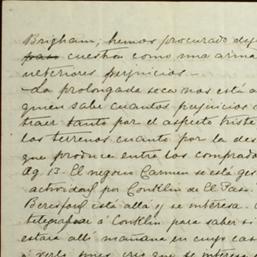 Brigham, hemos procurado dej
cuestion como una arma
ulteriores perjuicios.—
—La prolongada seca nos está a
quien sabe cuantos perjuicios o
traer tanto por el aspecto triste
los terrenos cuanto por la des
que produce entre los comprado
Ag 13. El negocio Carmen se está ges
activado por Conklin de El Paso
Beresford está allá y se interesa.
telegrafiar á Conklin para saber si
estará allá mañana en cuyo cas
á verlo, pues creo que se interesa